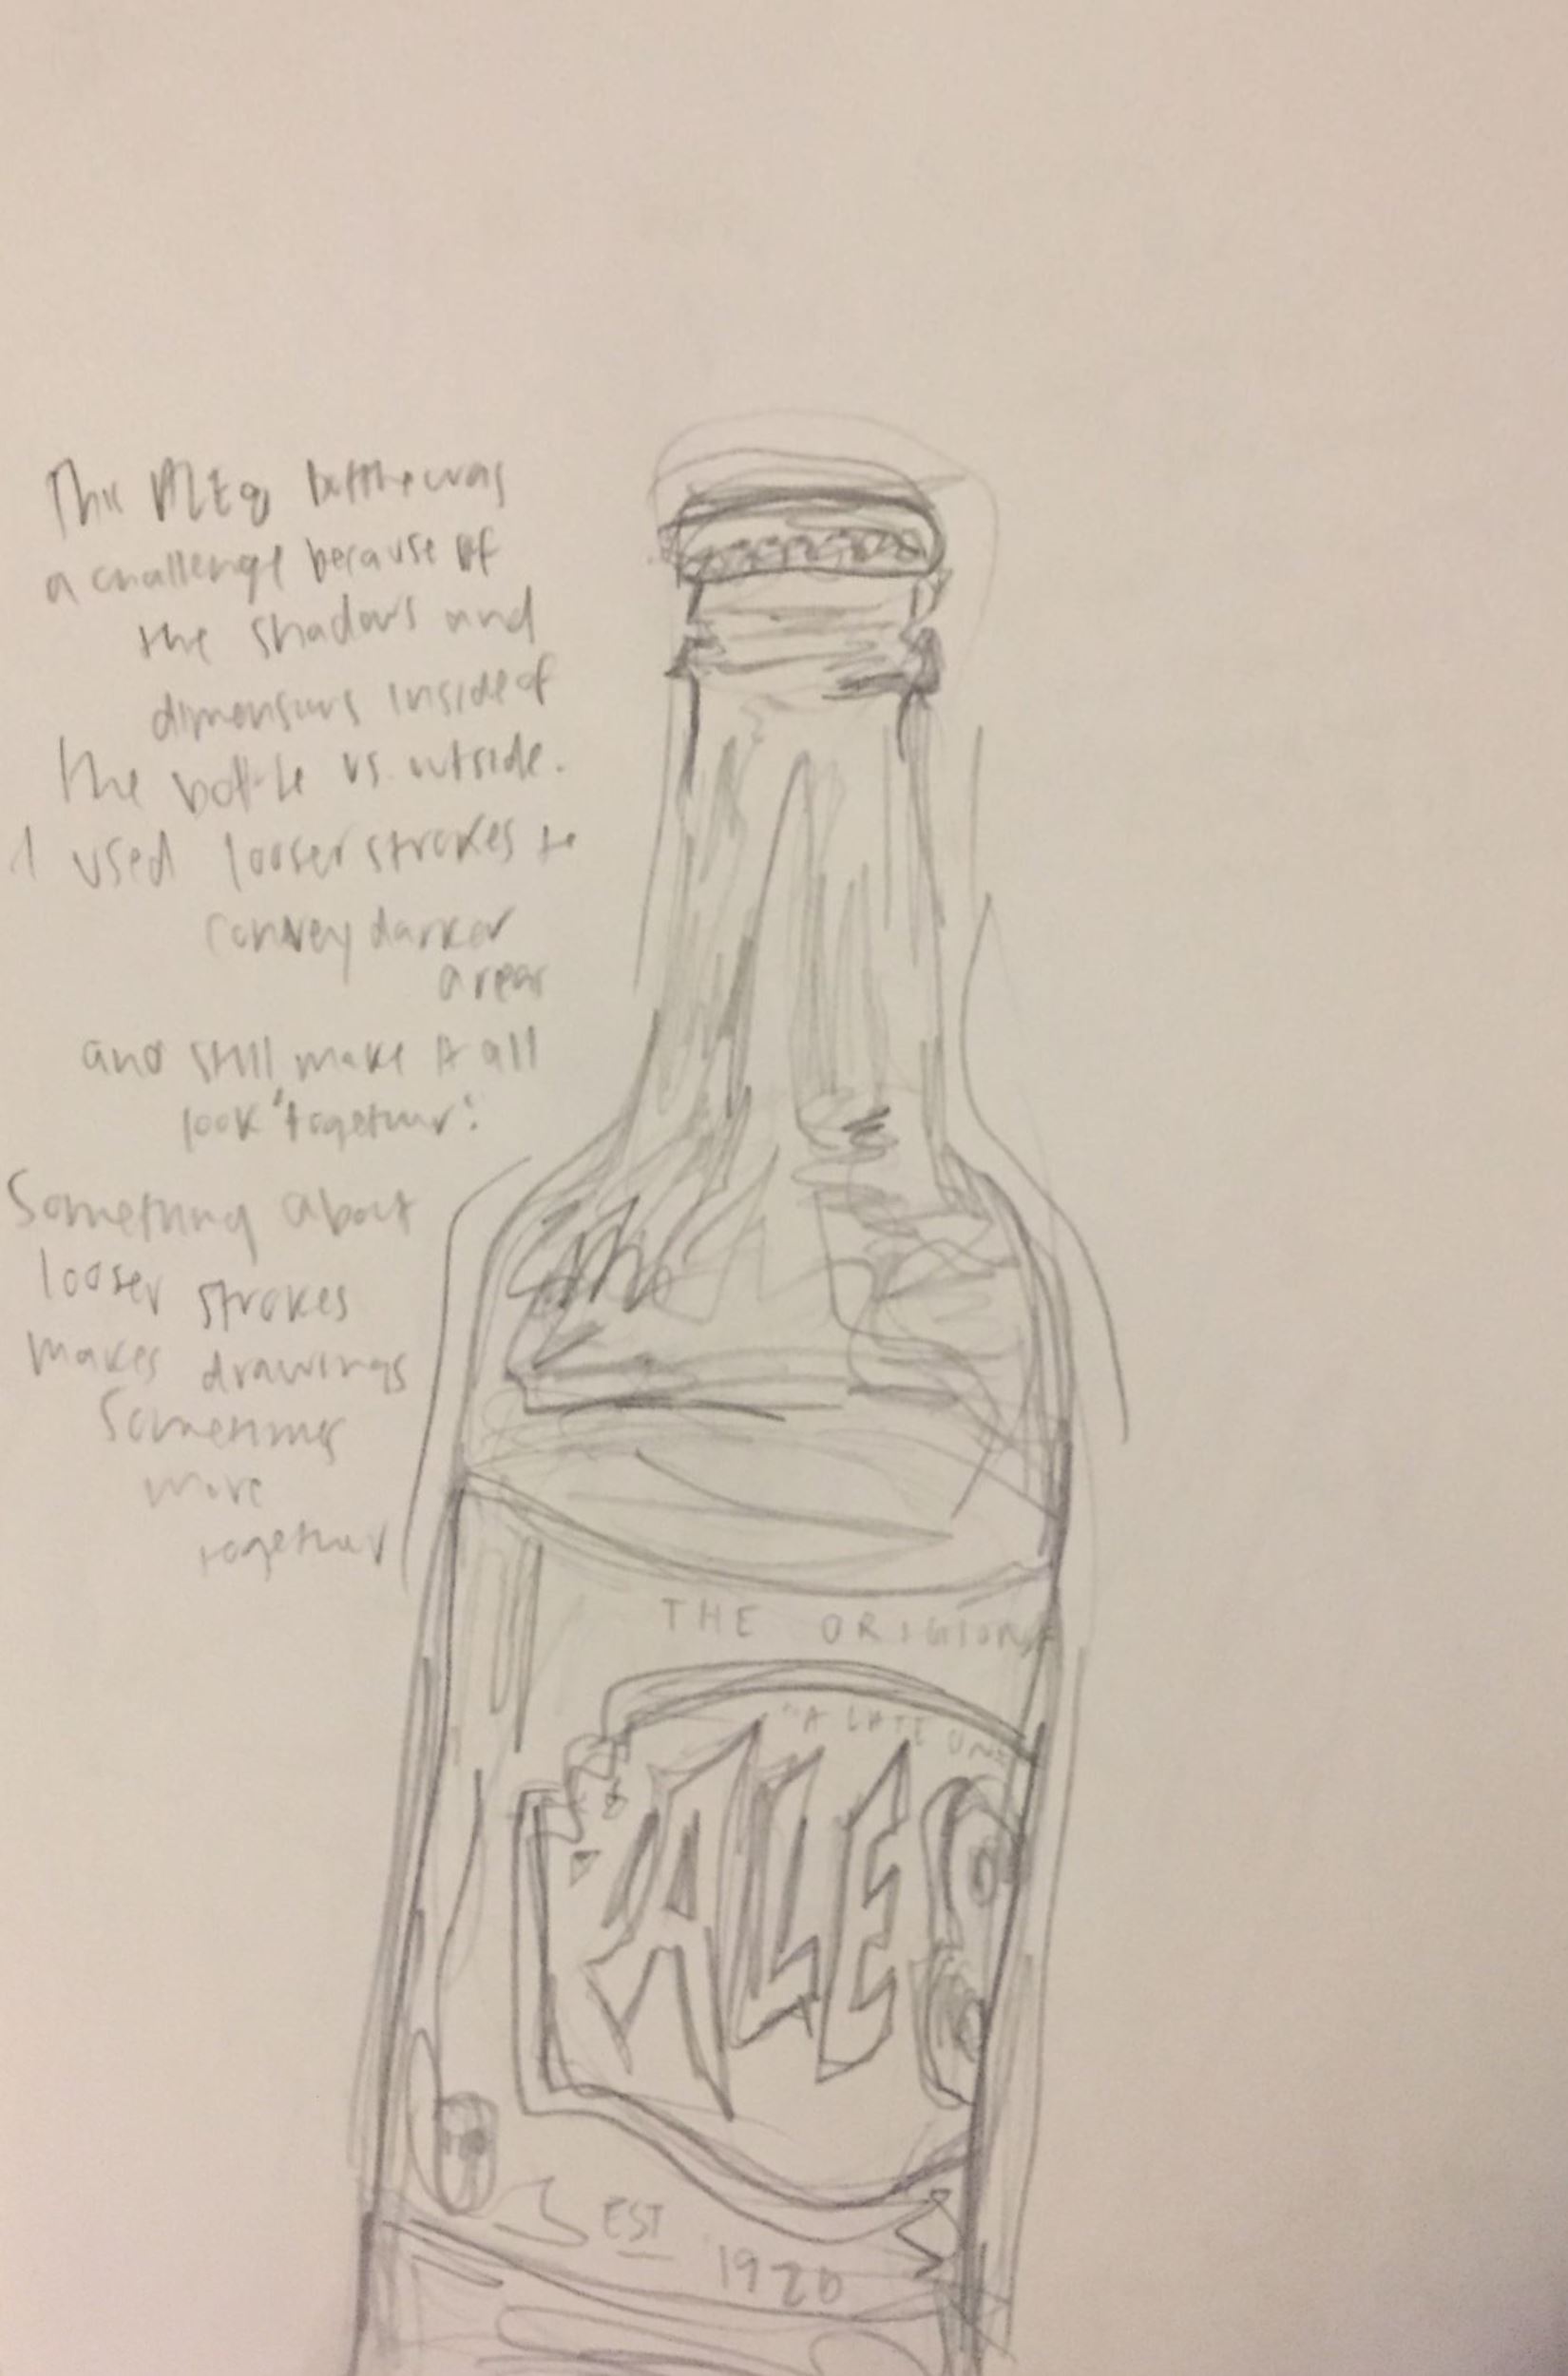 This ALE8 bottle was
a challenge because of
the shadows and
dimensions inside of
the bottle vs. outside.
I used looser strokes to
convey darker
areas
and still make it all
look "together".
Something about
looser strokes
makes drawings
sometimes
more
together
THE ORIGIONA
"A LATE ONE
ALE8
EST
1920